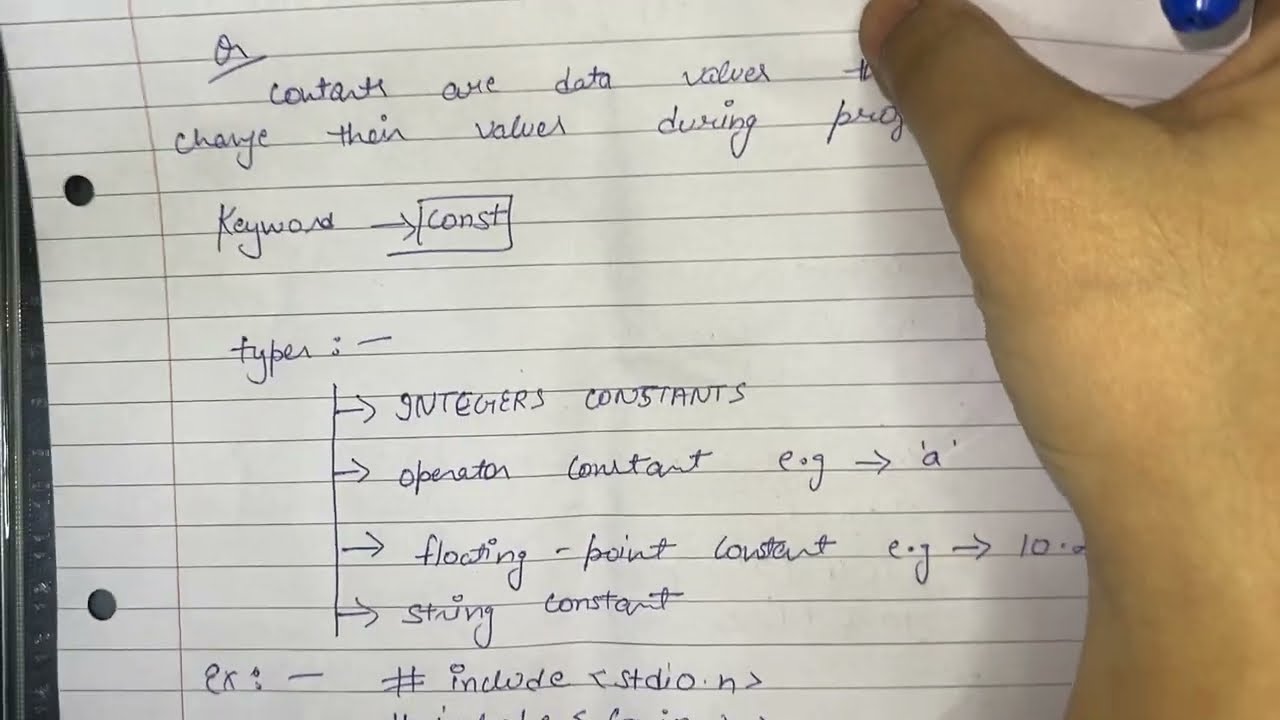 Or
Contants are data values
change their values during prog
Keyword → const
types : —
→ INTEGERS CONSTANTS
→ operator constant e.g → 'a'
→ floating - point constant e.g → 10.
→ string constant
ex : — # include <stdio.h>